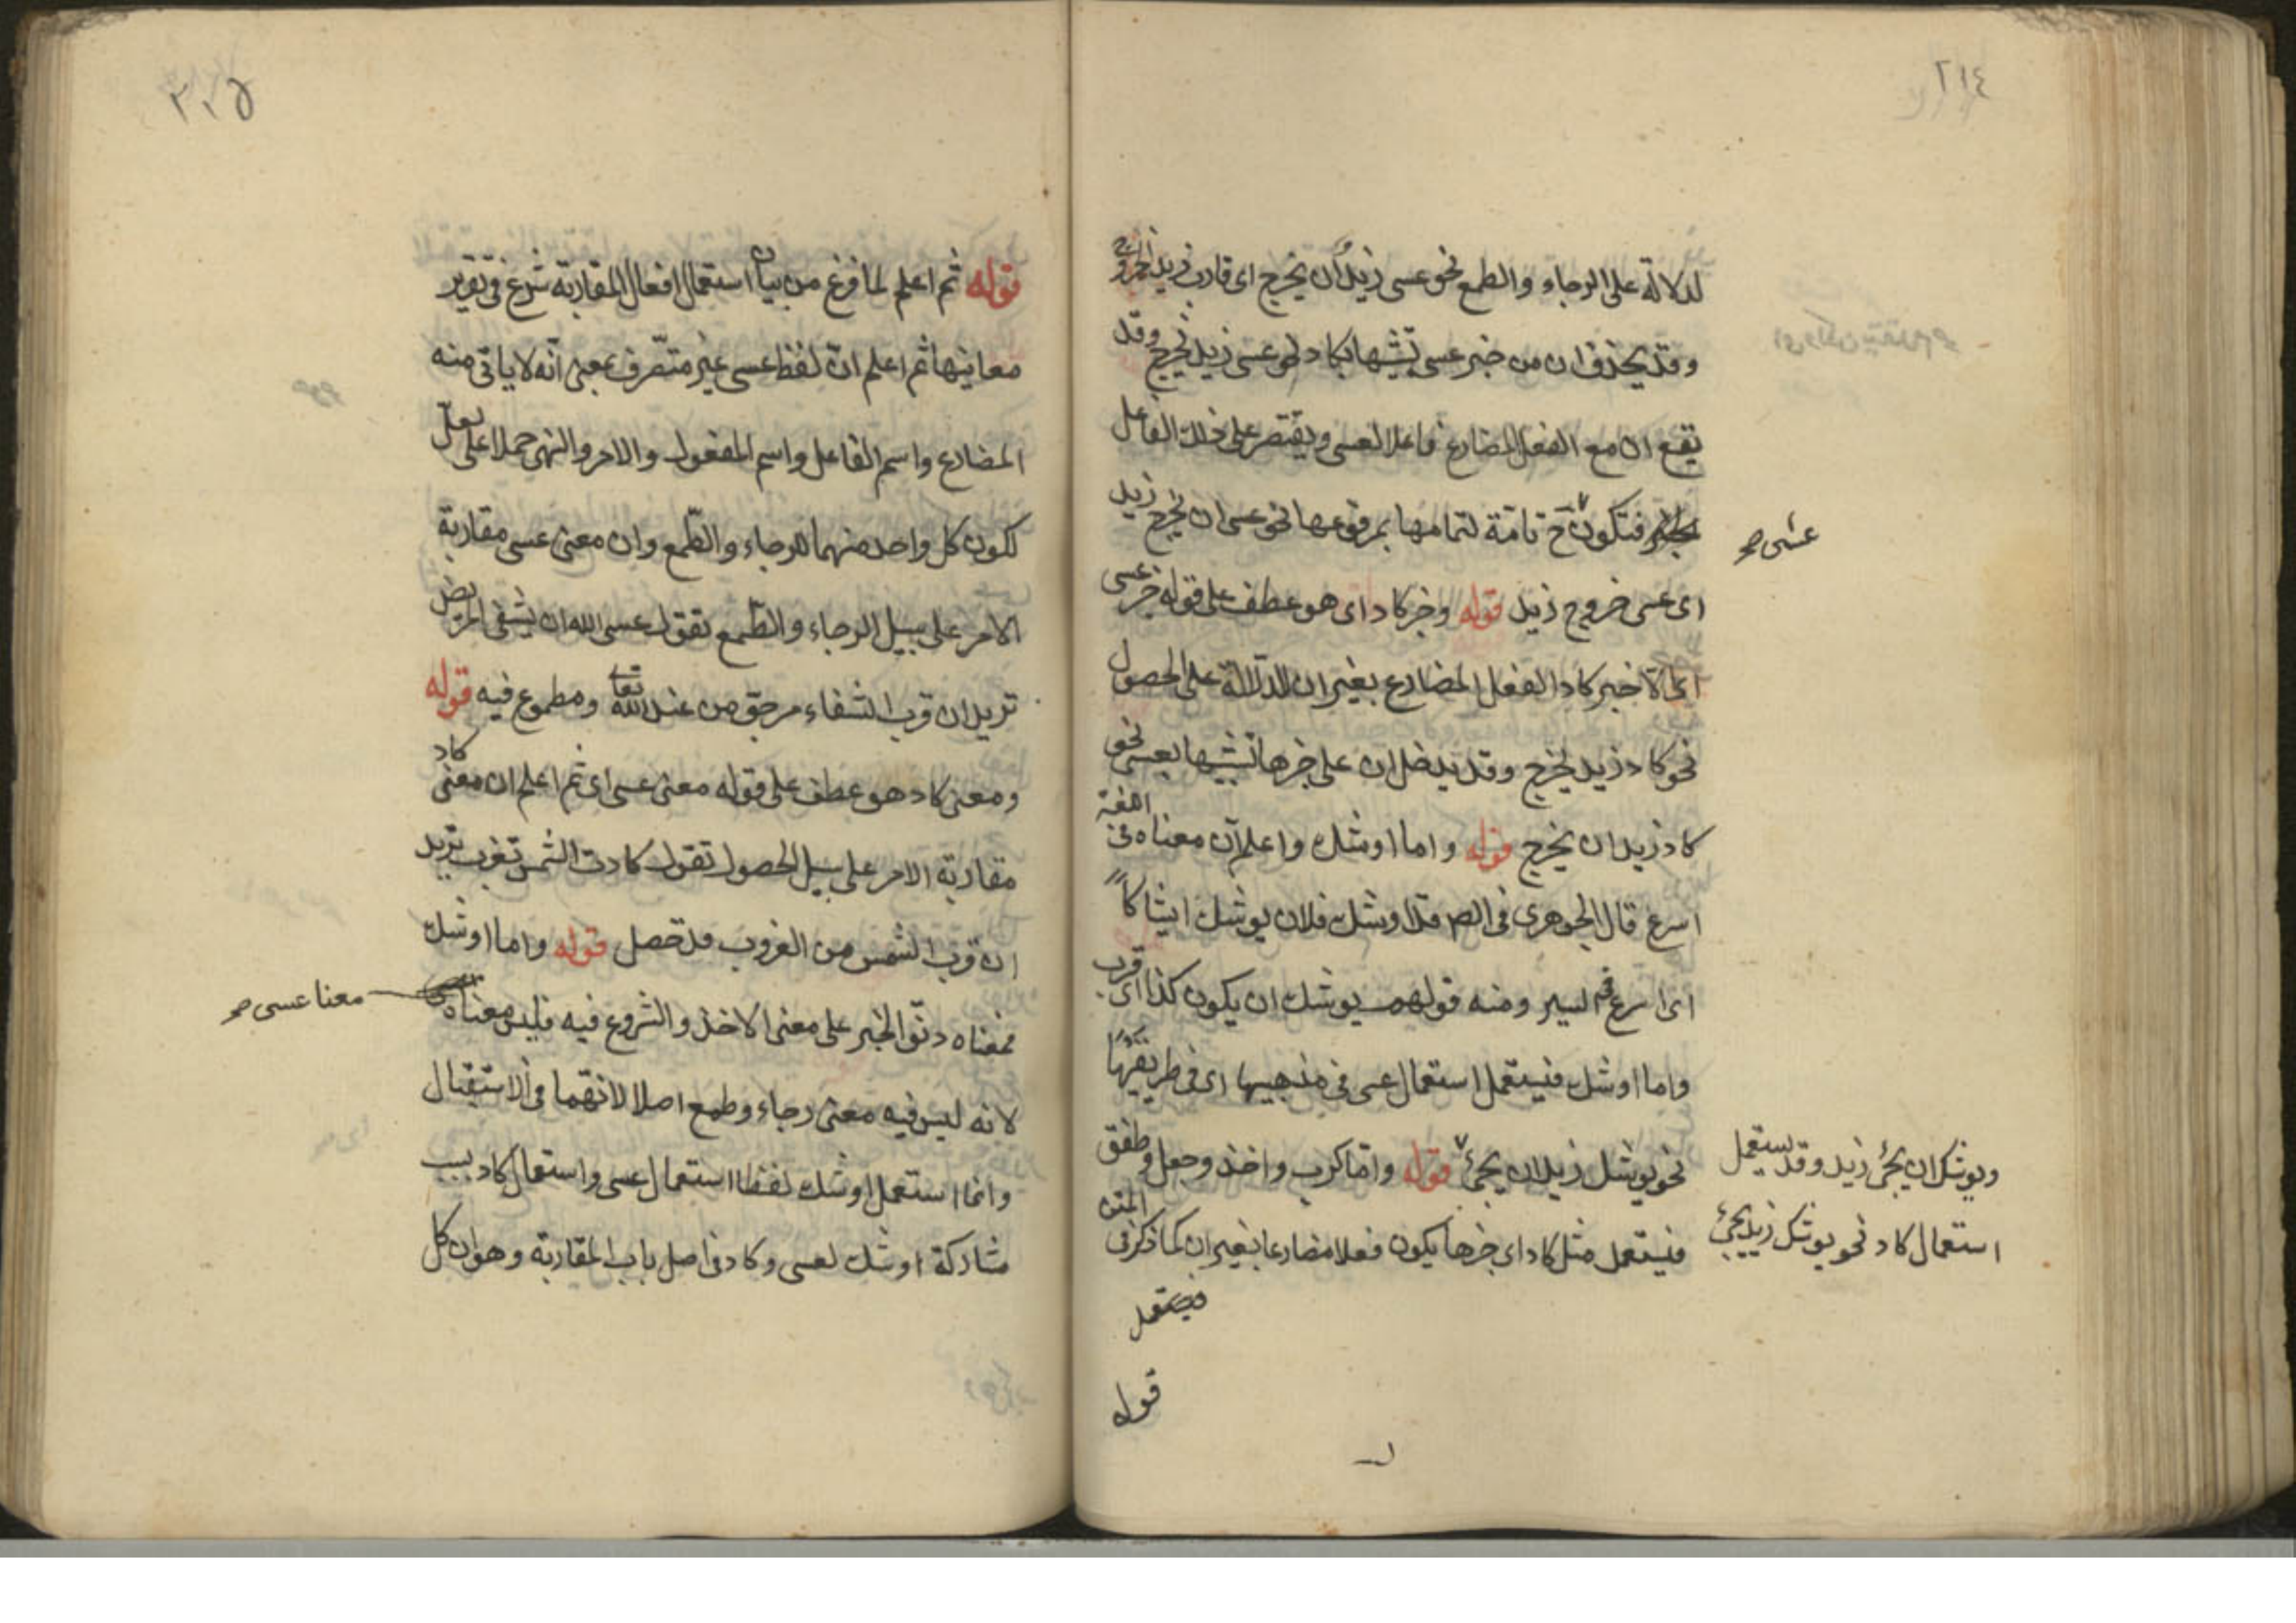 ٢١٤
لدلالة على الرجاء والطمع نحو عسى زيد أن يخرج اى قارب زيد الخروج
وقد يحذف ان من خبر عسى تشبيها بكاد نحو عسى زيد يخرج وقد
يقع ان مع الفعل المضارع فاعلا لعسى ويقتصر على ذلك الفاعل
فتكون ح تامّة لتمامها بمرفوعها نحو عسى ان يخرج زيد
عسى صح
اى عسى خروج زيد قوله وخبر كاد اى هو عطف على قوله خبر عسى
خبر كاد الفعل المضارع بغير ان للدلالة على الحصول
نحو كاد زيد يخرج وقد يدخل ان على خبرها تشبيها بعسى نحو
كاد زيد ان يخرج قوله واما اوشك واعلم ان معناه فى اللغة
اسرع قال الجوهرى فى الصح قد اوشك فلان يوشك ايشاكاً
اى اسرع فى السير ومنه قولهم يوشك ان يكون كذا اى قرب
واما اوشك فيستعمل استعمال عسى فى مذهبيها اى فى طريقيها
نحو يوشك زيد ان يجئ قوله وامّا كرب واخذ وجعل وطفق
ويوشك ان يجئ زيد وقد يستعمل
استعمال كاد نحو يوشك زيد يجئ
فيستعمل مثل كاد اى خبرها يكون فعلا مضارعا بغير ان كما ذكر فى المتن
فيستعمل
قوله
٢١٥
قوله ثم اعلم لما فرغ من بيان استعمال افعال المقاربة شرع فى تقرير
معانيها ثم اعلم انّ لفظ عسى غير متصّرف بمعنى انّه لا ياتى منه
المضارع واسم الفاعل واسم المفعول والامر والنهى حملا على لعلّ
لكون كل واحد منهما للرجاء والطّمع وان معنى عسى مقاربة
الامر على سبيل الرجاء والطّمع تقول عسى الله ان يشفى المريض
تريد ان قرب الشفاء مرجو من عند الله تعا ومطموع فيه قوله
ومعنى كاد هو عطف على قوله معنى عسى اى ثم اعلم ان معنى كاد
مقاربة الامر على سبيل الحصول تقول كادت الشمس تغرب تريد
ان قرب الشمس من الغروب قد حصل قوله واما اوشك
فمعناه دنوّ الخبر على معنى الاخذ والشروع فيه فليس معناه
معنا عسى صح
لانه ليس فيه معنى رجاء وطمع اصلا لانهما فى الاستقبال
وانما استعمل اوشك لفظا استعمال عسى واستعمال كاد بسبب
مشاركة اوشك لعسى وكاد فى اصل باب المقاربة وهو ان كل